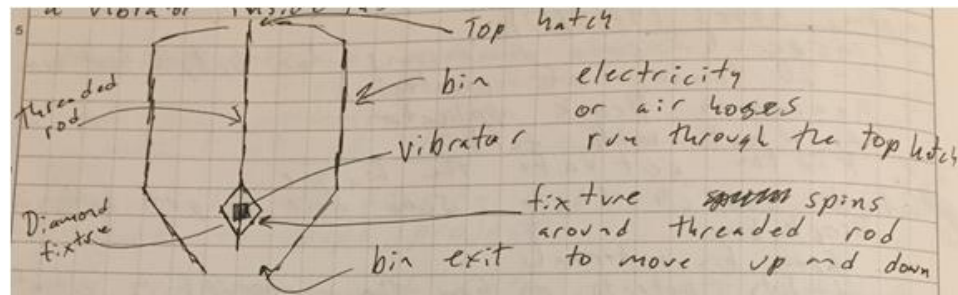 5
a vibrator inside
Top hatch
bin
electricity
or air hoses
run through the top hatch
threaded
rod
vibrator
Diamond
fixture
fixture spins
around threaded rod
to move up and down
bin exit